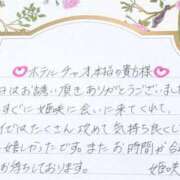 ホテルチャオ本館の貴方様
日はお誘い頂きありがとうございま
すぐに姫咲に会いに来てくれて、
イだけたくさん攻めて気持ち良くし
嬉しかったですまたお時間が合
お待ちしております。 姫咲